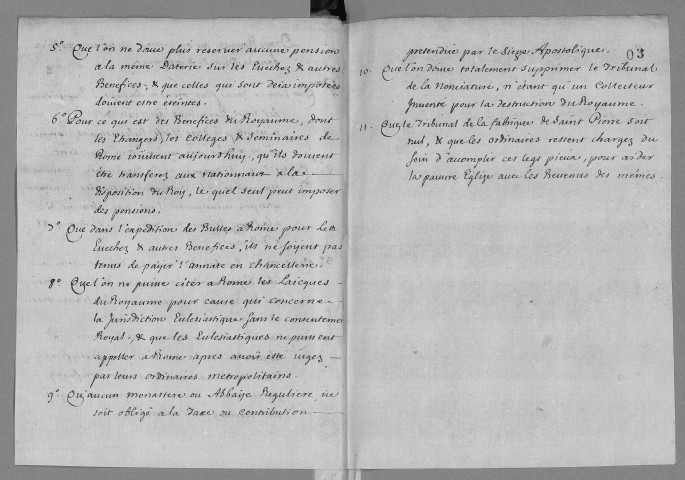 5º Que l'on ne doive plus reserver aucune pension
a la même Daterie sur les Evechez & autres
Benefices, & que celles qui sont deia imposées
doivent etre éteintes.
6º Pour ce qui est des Benefices du Royaume, dont
les Etrangers, les Colleges & Seminaires de
Rome iouissent aujourdhuy, qu'ils doivent
être transferez aux nationnaux a la
disposition du Roy, le quel seul peut imposer
des pensions.
7º Que dans l'expedition des Bulles a Rome pour les
Evechez & autres Benefices, ils ne soyent pas
tenus de païer l'annate en Chancellerie.
8º Que l'on ne puisse citer a Rome les Laicques
du Royaume pour cause qui concerne
la Jurisdiction Eclesiastique sans le consenteme
Royal, & que les Eclesiastiques ne puissent
appeller a Rome apres avoir esté iugez
par leurs ordinaires metropolitains.
9º Qu'aucun monastere ou Abbaïe Reguliere ne
soit obligé a la Taxe ou Contribution
pretendüe par le Siege Apostolique.
03
10. Que l'on doive totalement supprimer le Tribunal
de la Nonciature, n'etant qu'un Collecteur
Inventé pour la destruction du Royaume.
11. Que le Tribunal de la fabrique de Saint Pierre soit
nul, & que les ordinaires restent chargez du
soin d'acomplir ces legs pieux, pour aider
la pauvre Eglize avec les Revenus des mêmes.